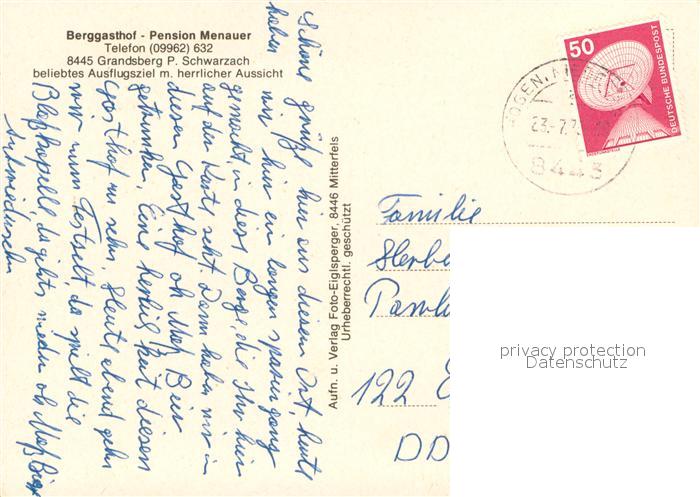 Berggasthof - Pension Menauer
Telefon (09962) 632
8445 Grandsberg P. Schwarzach
beliebtes Ausflugsziel m. herrlicher Aussicht
Schöne grüße hier aus diesem Ort, heute
haben
wir hier ein langen spaziergang
gemacht, in diese Berge, die Ihr hier
auf der Karte seht. Dann haben wir in
diesen Gasthof oh Maß Bier
getrunken. Eine herliche diesen
Gasthof zu sehn. Heute abend gehn
wir zum Festzelt, da spielt die
Blaßkapelle, da gehts wieder oh Maß Bier
Aufn. u. Verlag Foto-Eiglsperger, 8446 Mitterfels
Urheberrechtl. geschützt
50
DEUTSCHE BUNDESPOST
23.-7.7
8443
Familie
122
DD
privacy protection
Datenschutz